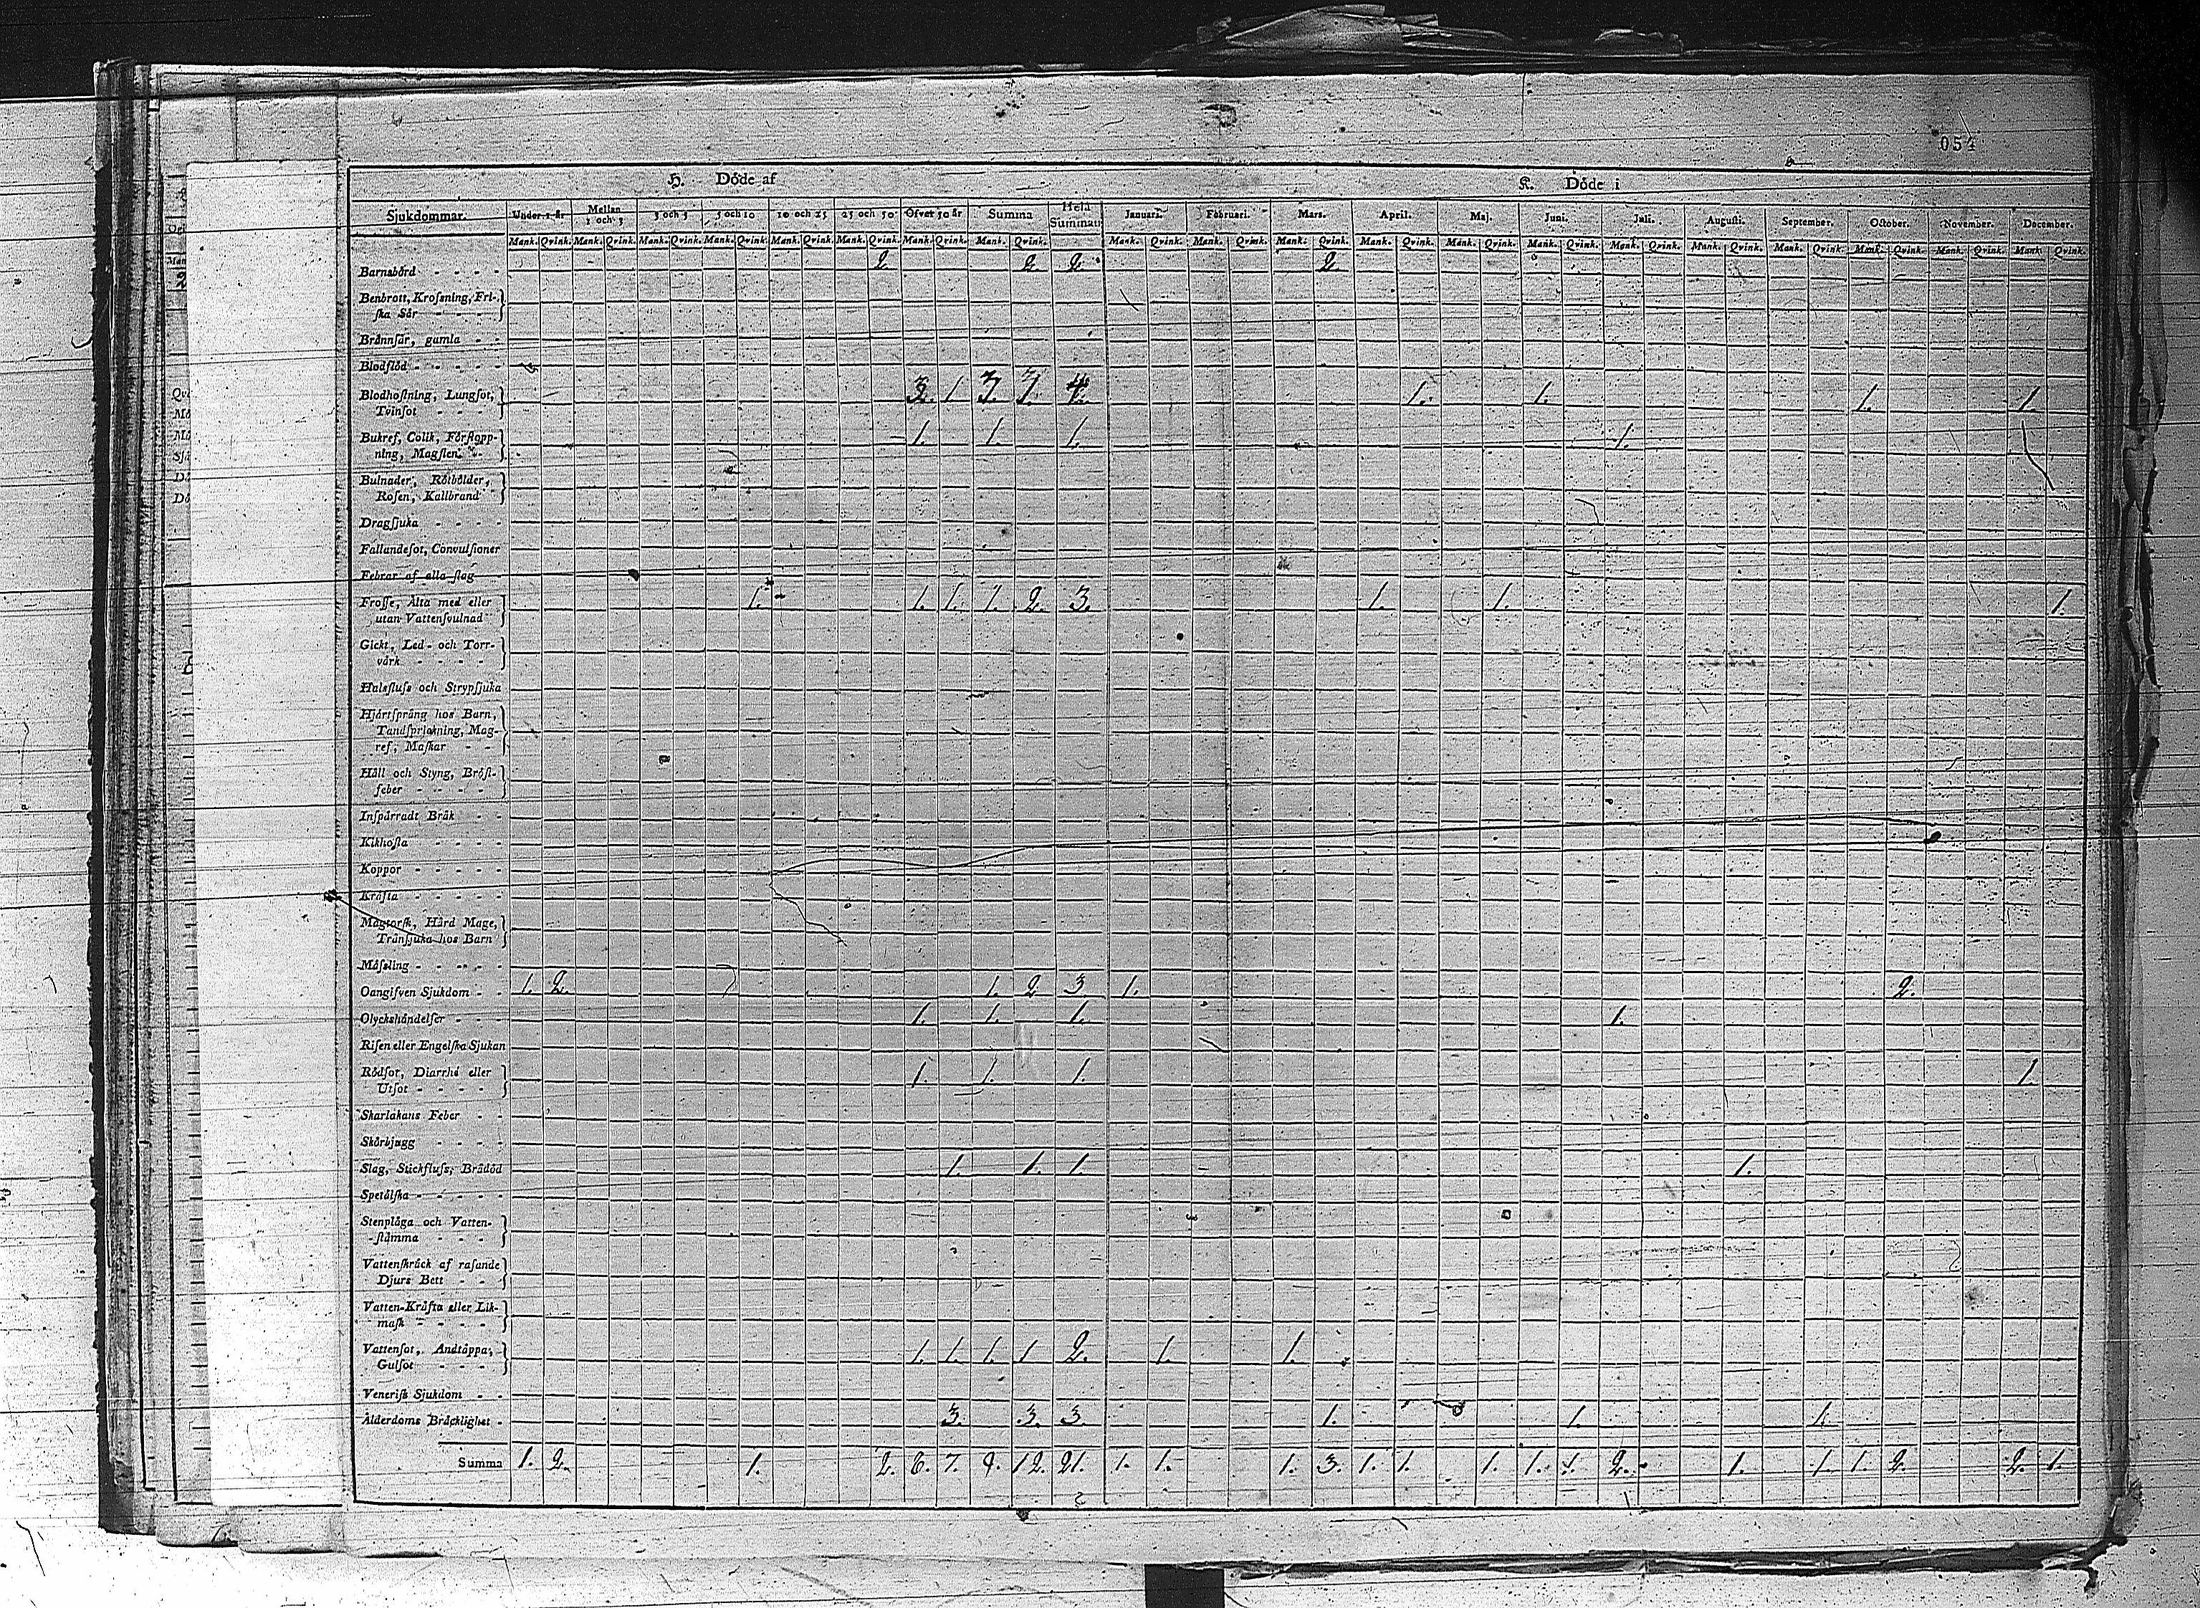 054
H. Döde af K. Döde i
Sjukdommar. Under 1 år Mellan 1 och 3 3 och 5 5 och 10 10 och 25 25 och 50 Öfver 50 år Summa Hela Summan Januari. Februari. Mars. April. Maj. Juni. Juli. Augusti. September. October. November. December.
Mank. Qvink. Mank. Qvink. Mank. Qvink. Mank. Qvink. Mank. Qvink. Mank. Qvink. Mank. Qvink. Mank. Qvink. Mank. Qvink. Mank. Qvink. Mank. Qvink. Mank. Qvink. Mank. Qvink. Mank. Qvink. Mank. Qvink. Mank. Qvink. Mank. Qvink. Mank. Qvink. Mank. Qvink. Mank. Qvink.
Barnsbörd - - - - 2 2. 2. 2.
Benbrott, Krossning, Fri-
ska Sår - - -
Brännsår, gamla - -
Blodflöd - - - - -
Blodhostning, Lungsot, 3. 1 3. 1. 4. 1. 1. 1. 1.
Tvinsot - - - -
Bukref, Colik, Förstopp- 1. 1. 1. 1.
ning, Magsten. - -
Bulnader, Rötbölder,
Rosen, Kallbrand
Dragsjuka - - - -
Fallandesot, Convulsioner
Febrar af alla slag
Frossa, Älta med eller 1. 1. 1. 1. 2. 3. 1. 1. 1.
utan Vattensvulnad
Gickt, Led- och Torr-
värk - - - -
Halsfluss och Strypsjuka
Hjärtsprång hos Barn,
Tandsprickning, Mag-
ref, Maskar - -
Håll och Styng, Bröst-
feber - - - -
Inspärradt Bråk - -
Kikhosta - - - -
Koppor - - - - -
Kräfta - - - - -
Magtorsk, Hård Mage,
Tränsjuka hos Barn
Mässling - - - - -
Oangifven Sjukdom - - 1. 2. 1. 2 3 1. 2.
Olyckshändelser - - - 1. 1. 1. 1.
Risen eller Engelska Sjukan
Rödsot, Diarrhé eller 1. 1. 1. 1.
Utsot - - - -
Skarlakans Feber - -
Skörbjugg - - - -
Slag, Stickfluss, Brådöd 1. 1. 1. 1.
Spetälska - - - - -
Stenplåga och Vatten-
stämma - - -
Vattenskräck af rasande
Djurs Bett - - -
Vatten-Kräfta eller Lik-
mask - - - -
Vattensot, Andtäppa, 1. 1. 1. 1 2. 1. 1.
Gulsot - - -
Venerisk Sjukdom - -
Ålderdoms Bräcklighet - 3. 3. 3. 1. 1. 1.
Summa 1. 2. 1. 2. 6. 7. 9. 12. 21. 1. 1. 1. 3. 1. 1. 1. 1. 1. 2. 1. 1. 1. 2. 2. 1.